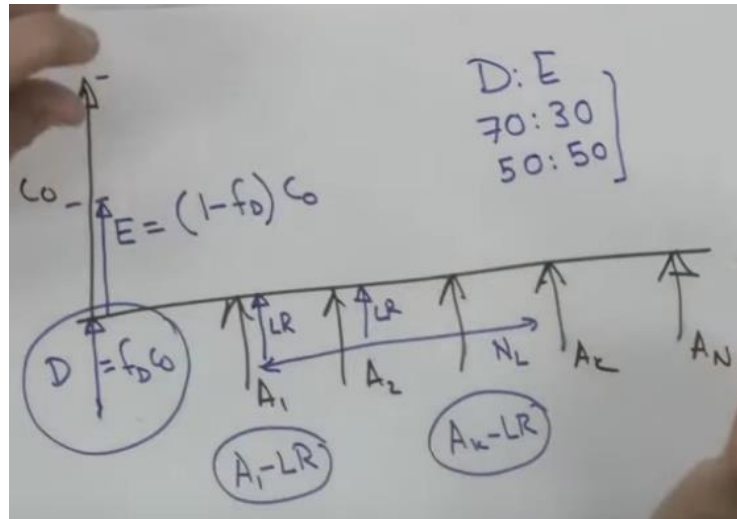 D: E
70:30
50:50
Co
E = (1-fD) Co
D = fD Co
LR
LR
A1
A2
NL
AK
AN
A1-LR
AK-LR